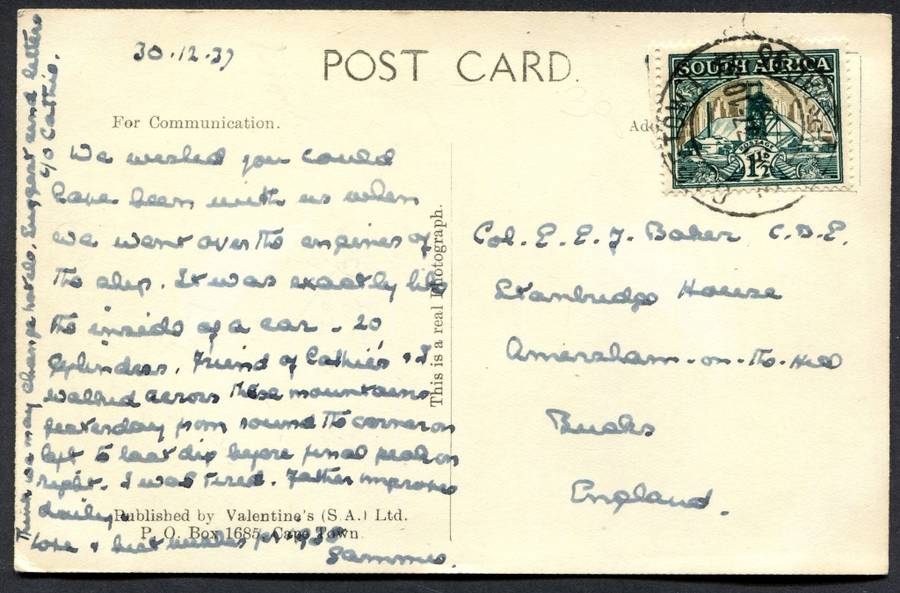 30.12.37
POST CARD.
For Communication.
We wished you could
have been with us when
we went over the engines of
the ship. It was exactly like
the inside of a car - 20
cylinders. Friend of Cathie's & I
walked across these mountains
yesterday from round the corner on
left to last dip before final peak on
right. I was tired. Father improves
daily.
Love & best wishes for 1938
Sammie.
Think we may change hotels. Suggest send letters
c/o Cathie.
Published by Valentine's (S.A.) Ltd.
P. O. Box 1685, Cape Town
This is a real Photograph.
SOUTH AFRICA
POSTAGE
1½D
Col. E. E. J. Baker C.B.E.
Stanbridge House
Amersham-on-the-Hill
Bucks
England.